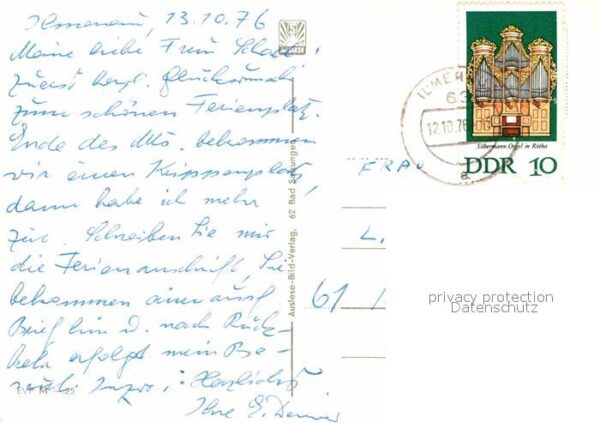 Ilmenau, 13.10.76
Meine liebe Frau
zuerst herzl. Glückwunsch
zum schönen Ferienplatz.
Ende des Mts. bekommen
wir einen Krippenplatz,
dann habe ich mehr
Zeit. Schreiben Sie mir
die Ferienanschrift, Sie
bekommen einen ausf.
Brief hin u. nach Rück-
kehr erfolgt mein Be-
such. Herzlichst
Ihre E.
EVP M -,25
Auslese-Bild-Verlag, 62 Bad Salzungen
FRAU
L.
61
12.10.76
63
Silbermann-Orgel in Rötha
DDR 10
privacy protection
Datenschutz